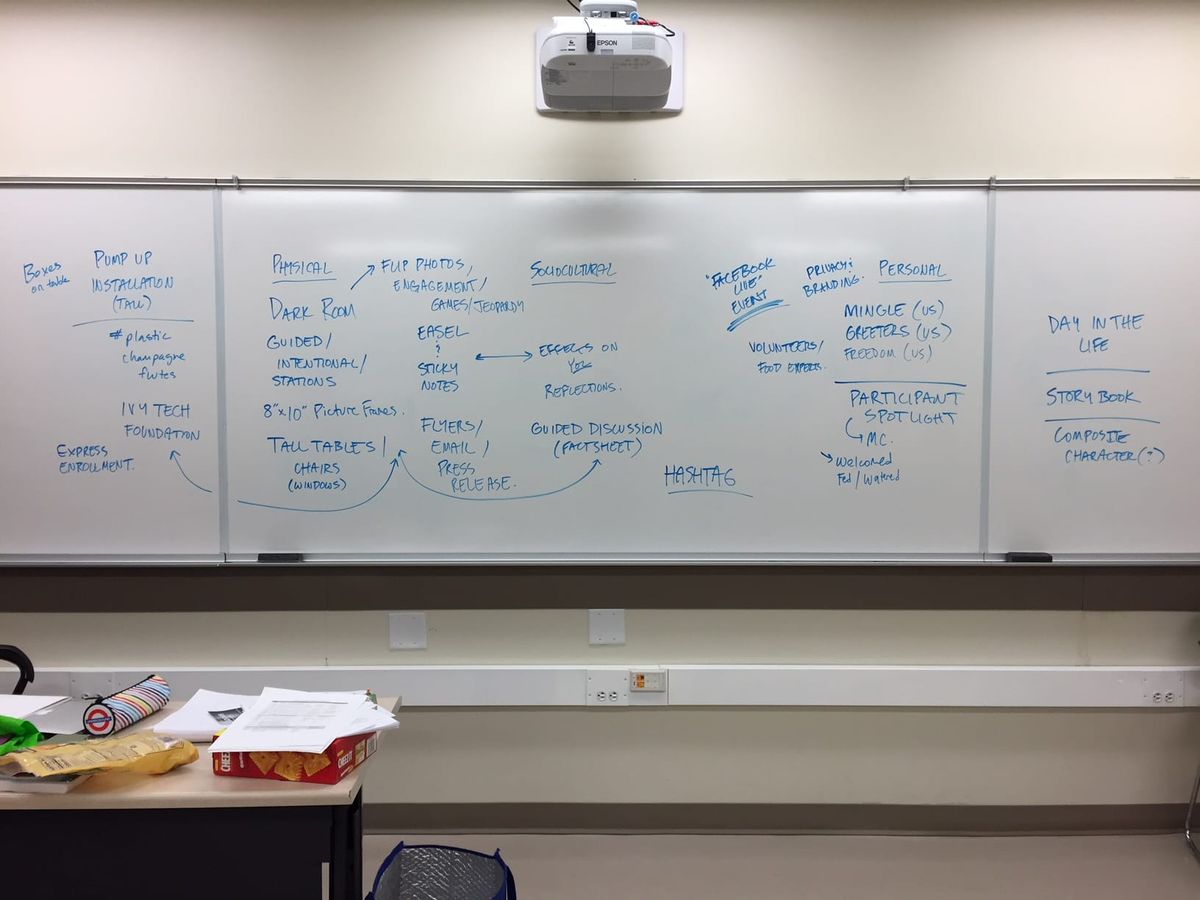 EPSON
Boxes
on table
PUMP UP
INSTALLATION
(TALL)
# plastic
champagne
flutes
IVY TECH
FOUNDATION
EXPRESS
ENROLLMENT.
PHYSICAL
DARK ROOM
GUIDED/
INTENTIONAL/
STATIONS
8"x10" Picture Frames.
TALL TABLES/
CHAIRS
(WINDOWS)
FLIP PHOTOS/
ENGAGEMENT/
GAMES/JEOPARDY
EASEL
&
STICKY
NOTES
FLYERS/
EMAIL/
PRESS
RELEASE.
SOCIOCULTURAL
EFFECTS ON
YOU
REFLECTIONS.
GUIDED DISCUSSION
(FACTSHEET)
HASHTAG
"FACEBOOK
LIVE"
EVENT
PRIVACY &
BRANDING.
VOLUNTEERS/
FOOD EXPERTS.
PERSONAL
MINGLE (US)
GREETERS (US)
FREEDOM (US)
PARTICIPANT
SPOTLIGHT
M.C.
Welcomed
Fed/Watered
DAY IN THE
LIFE
STORY BOOK
COMPOSITE
CHARACTER(?)
CHEEZ-IT